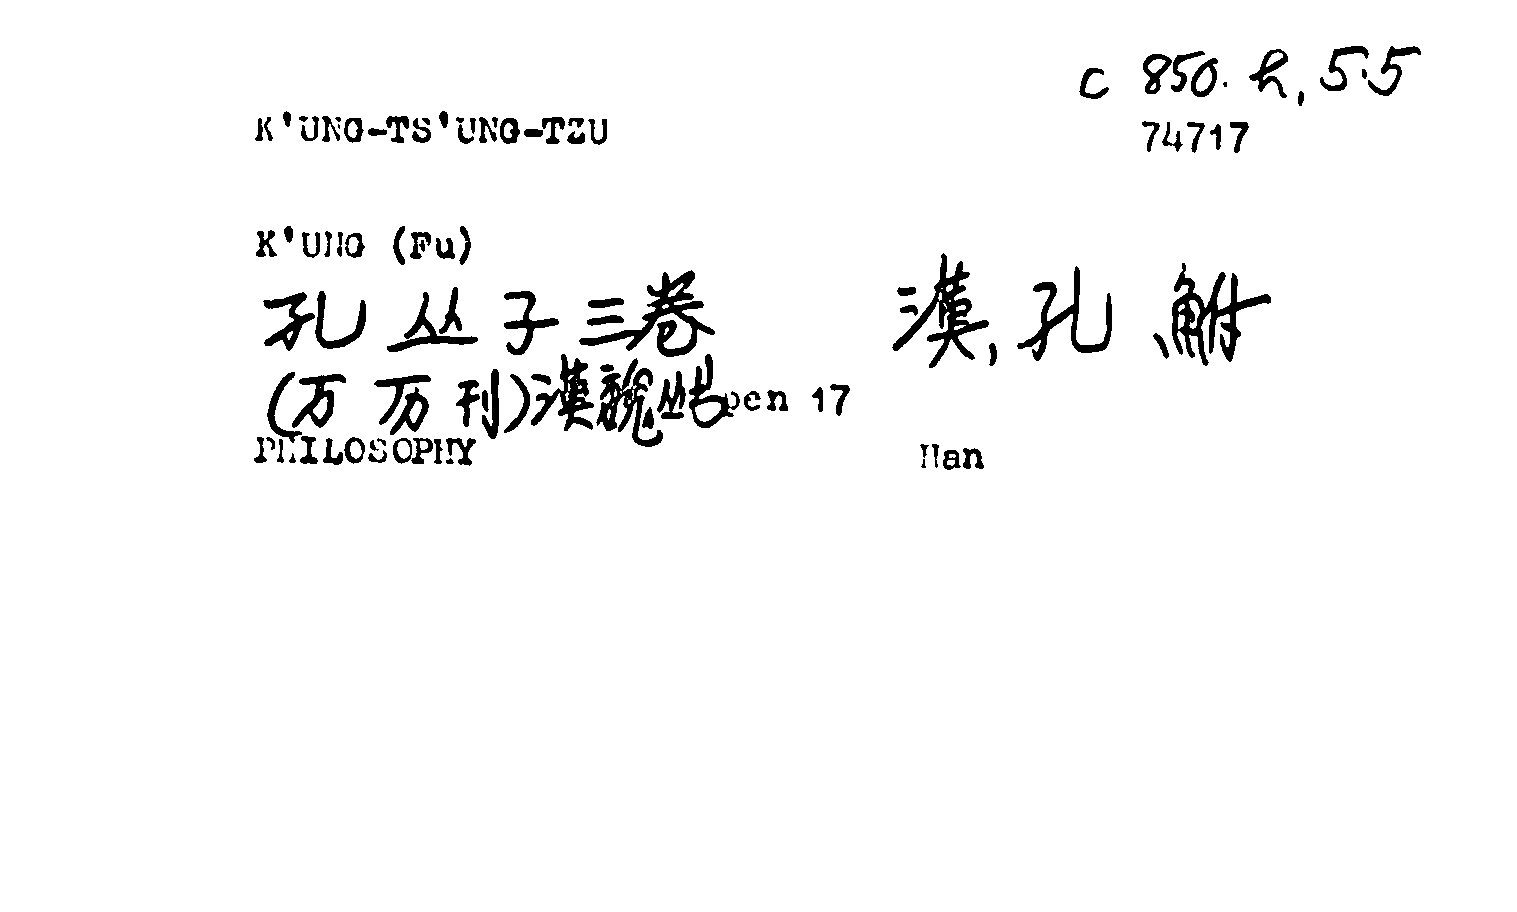 c 850.h,55
K'UNG-TS'UNG-TZU 74717
K'UNG (Fu)
孔丛子三卷 漢,孔鮒
(万历刊)漢魏丛书pen 17
PHILOSOPHY Han